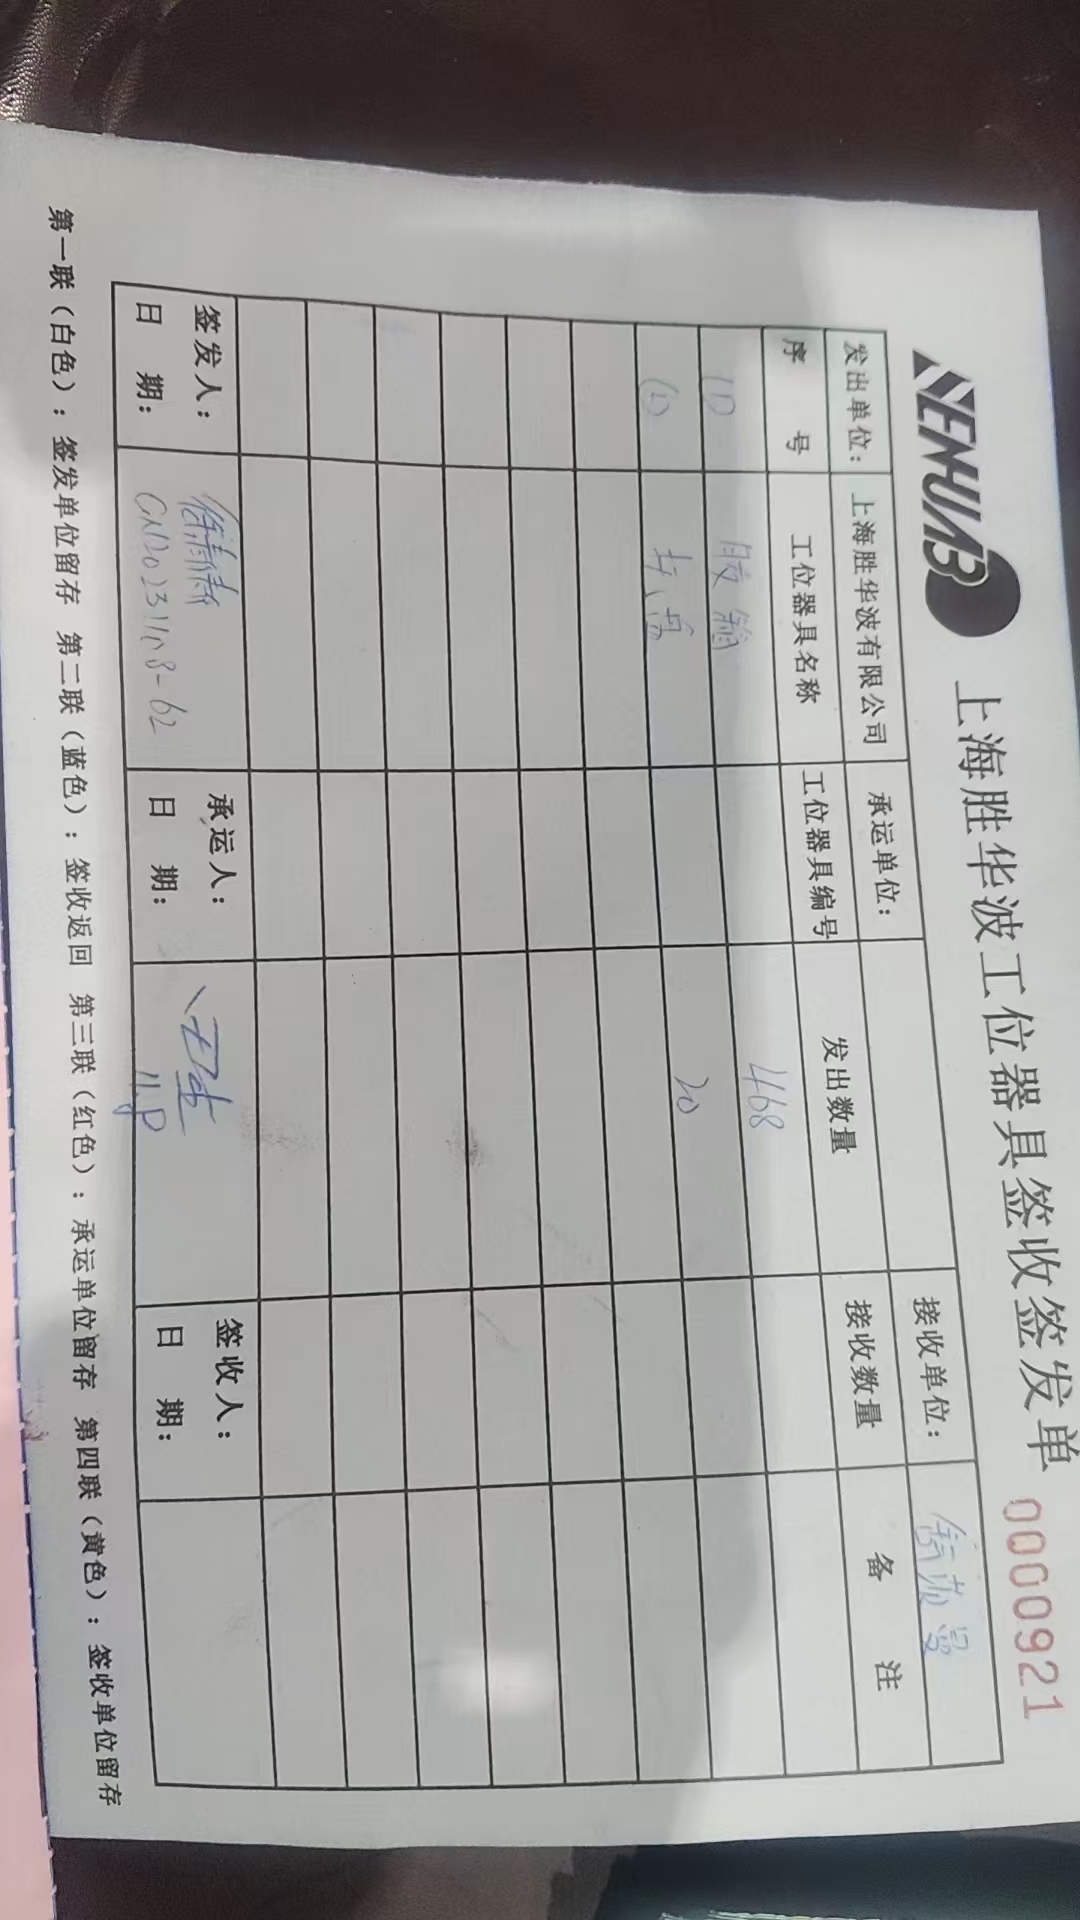 SENHUAB 上海胜华波工位器具签收签发单 0000921
发出单位: 上海胜华波有限公司 承运单位: 接收单位:
序号 工位器具名称 工位器具编号 发出数量 接收数量 备注
(1) 胶箱 468
(2) 20
签发人: 承运人: 签收人:
日期: CN20231108-62 日期: 11.8 日期:
第一联（白色）: 签发单位留存 第二联（蓝色）: 签收返回 第三联（红色）: 承运单位留存 第四联（黄色）: 签收单位留存